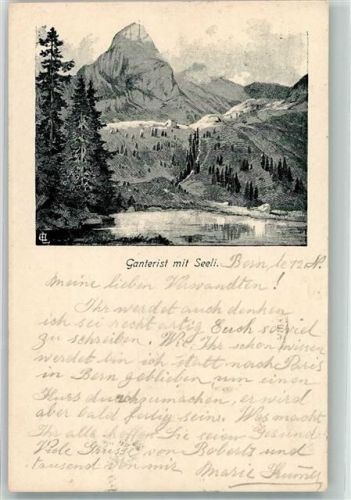 Ganterist mit Seeli. Bern, le 12
Meine lieben Verwandten!
Ihr werdet auch denken
ich sei recht artig Euch so viel
zu schreiben. Wie Ihr schon wissen
werdet bin ich statt nach Paris
in Bern geblieben um einen
Kurs durchzumachen, er wird
aber bald fertig sein. Was macht
Ihr alle hoffen Sie seien Gesund
Viele Grüsse von Robert und
tausend von mir Marie